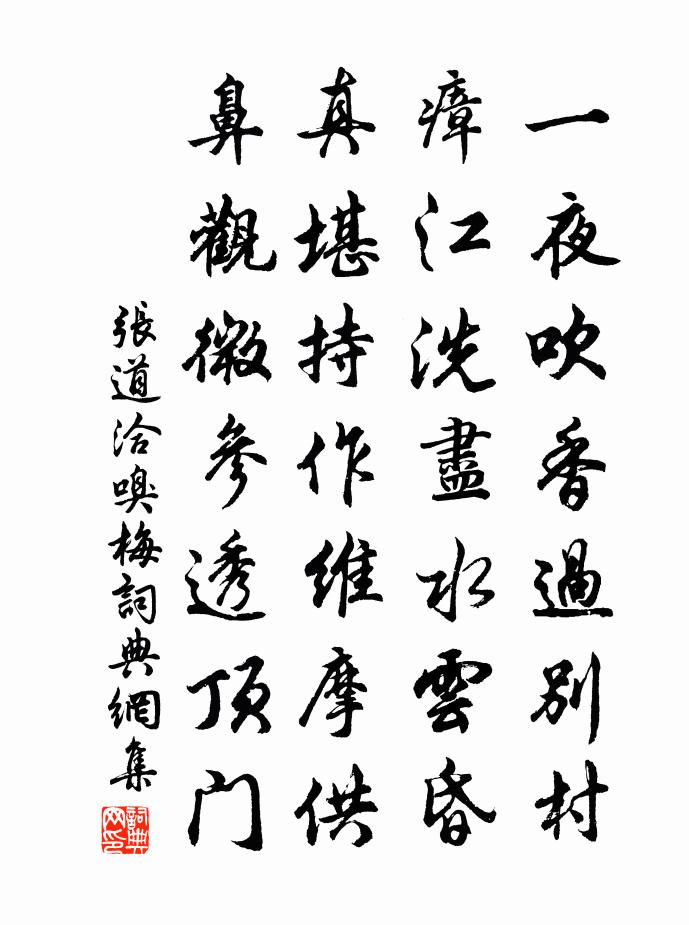 一夜吹香過別村
瘴江洗盡水雲昏
真堪持作維摩供
鼻觀微參透頂门
張道洽嗅梅詞典網集
詞典网印